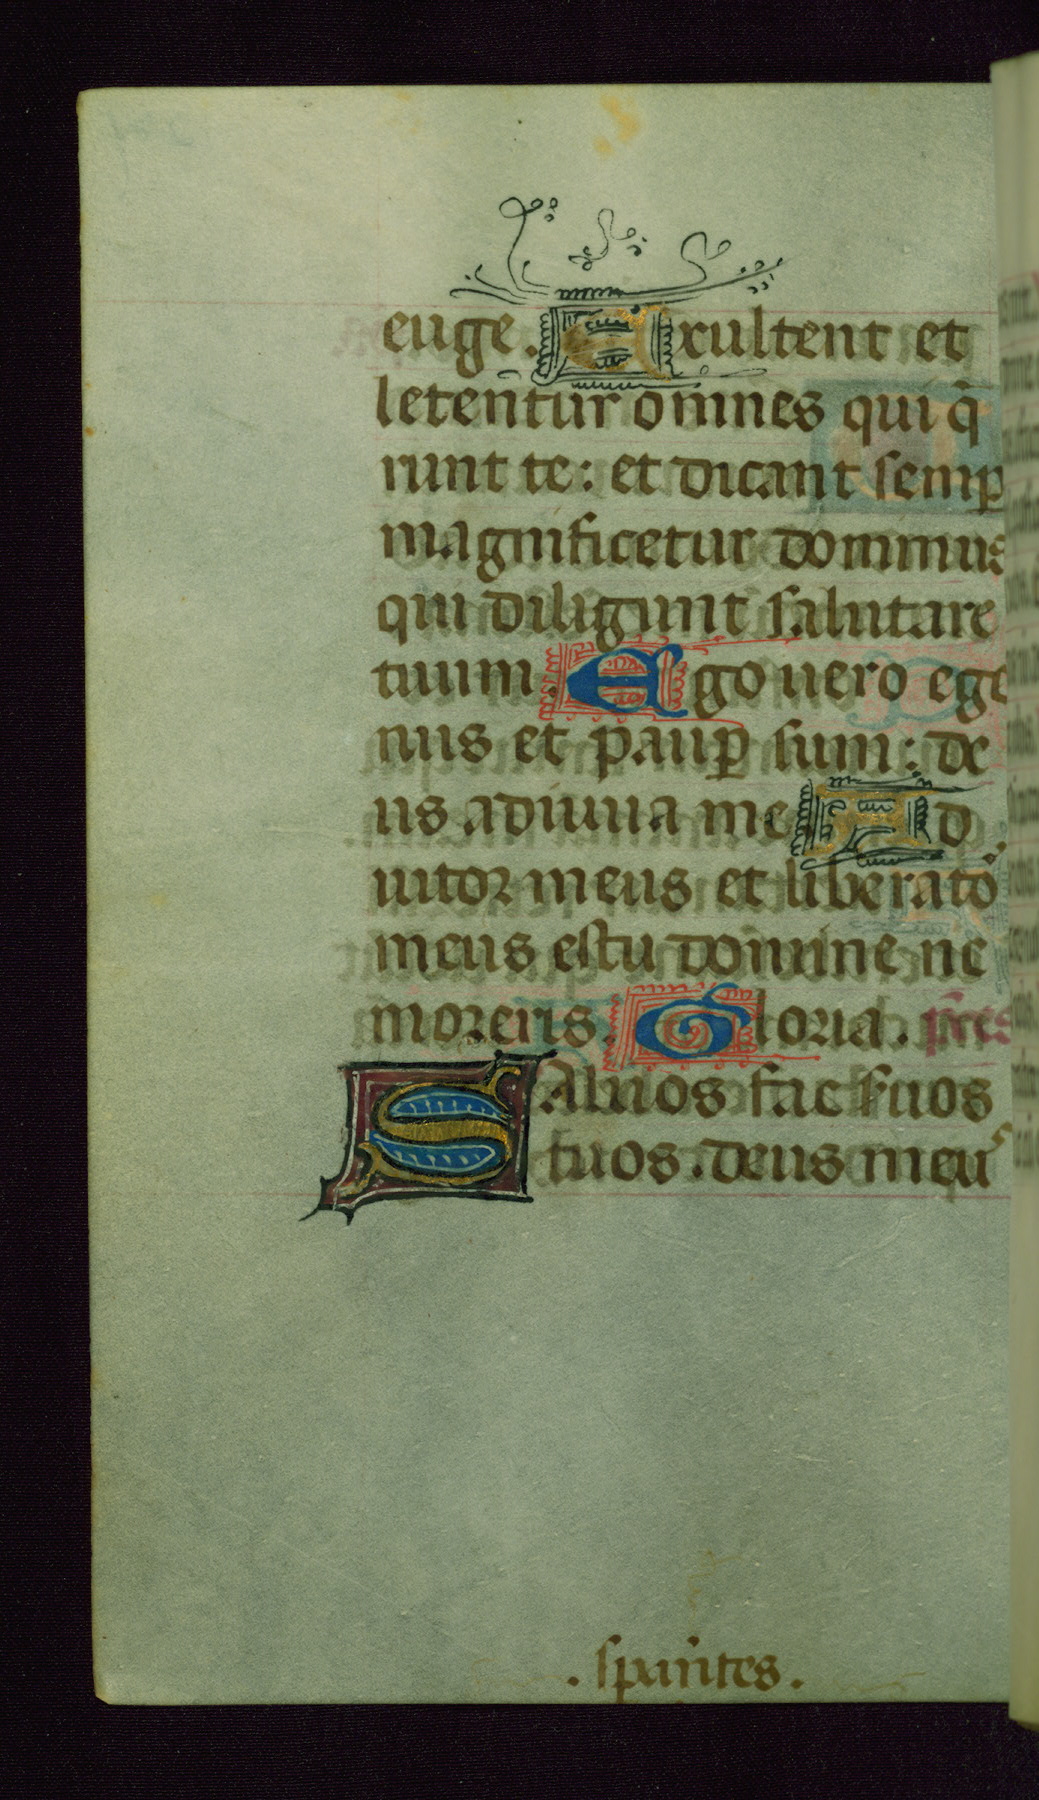 euge. Exultent et
leten̄tur omnes qui q̄
runt te: et dicant semp̲
magnificetur dominus
qui diligunt salutare
tuum. Ego uero ege
nus et paup̲ sum: de
us adiuua me Ad
iutor meus et liberatō
meus es tu domine ne
moreris. Gloria. p̄ces
Saluos fac seruos
tuos. deus meus
. sp̲an̄tes.